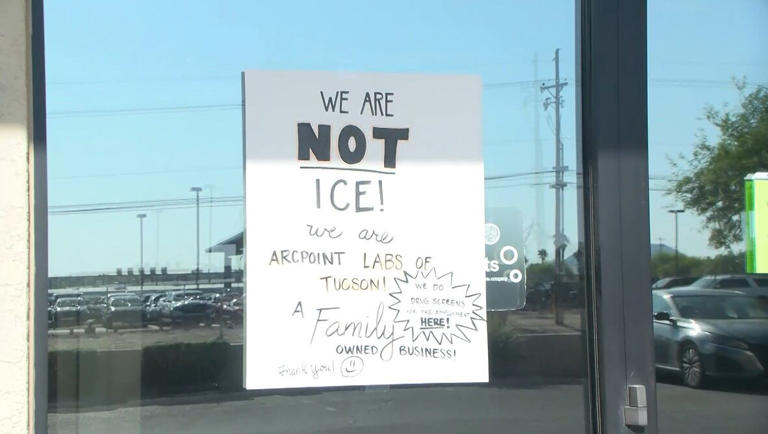 WE ARE
NOT
ICE!
we are
ARCPOINT LABS OF
TUCSON!
WE DO
DRUG SCREENS
FOR PRE-EMPLOYMENT
HERE!
A Family
OWNED BUSINESS!
Thank you!
ts